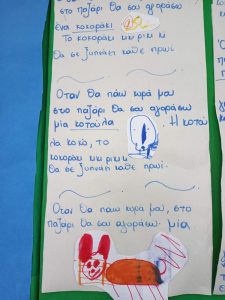 στο παζάρι θα σου αγοράσω
ένα κοκοράκι
Το κοκοράκι κικιρικικι
θα σε ξυπνάει κάθε πρωί
Όταν θα πάω κυρά μου
στο παζάρι θα σου αγοράσω
μία κοτούλα. Η κοτού
λα κοκο, το
κοκοράκι κικιρικικι
θα σε ξυπνάει κάθε πρωί.
Όταν θα πάω κυρά μου, στο
παζάρι θα σου αγοράσω μια